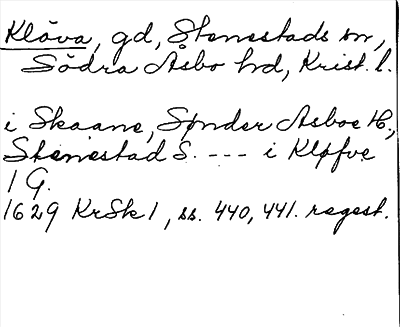 Klöva, gd, Stenestads sn,
Södra Åsbo hd, Krist. l.
i Skaane, Sønder Asboe H.,
Stenestad S. --- i Kløfve
1 G.
1629 KrSk 1, ss. 440, 441. regest.